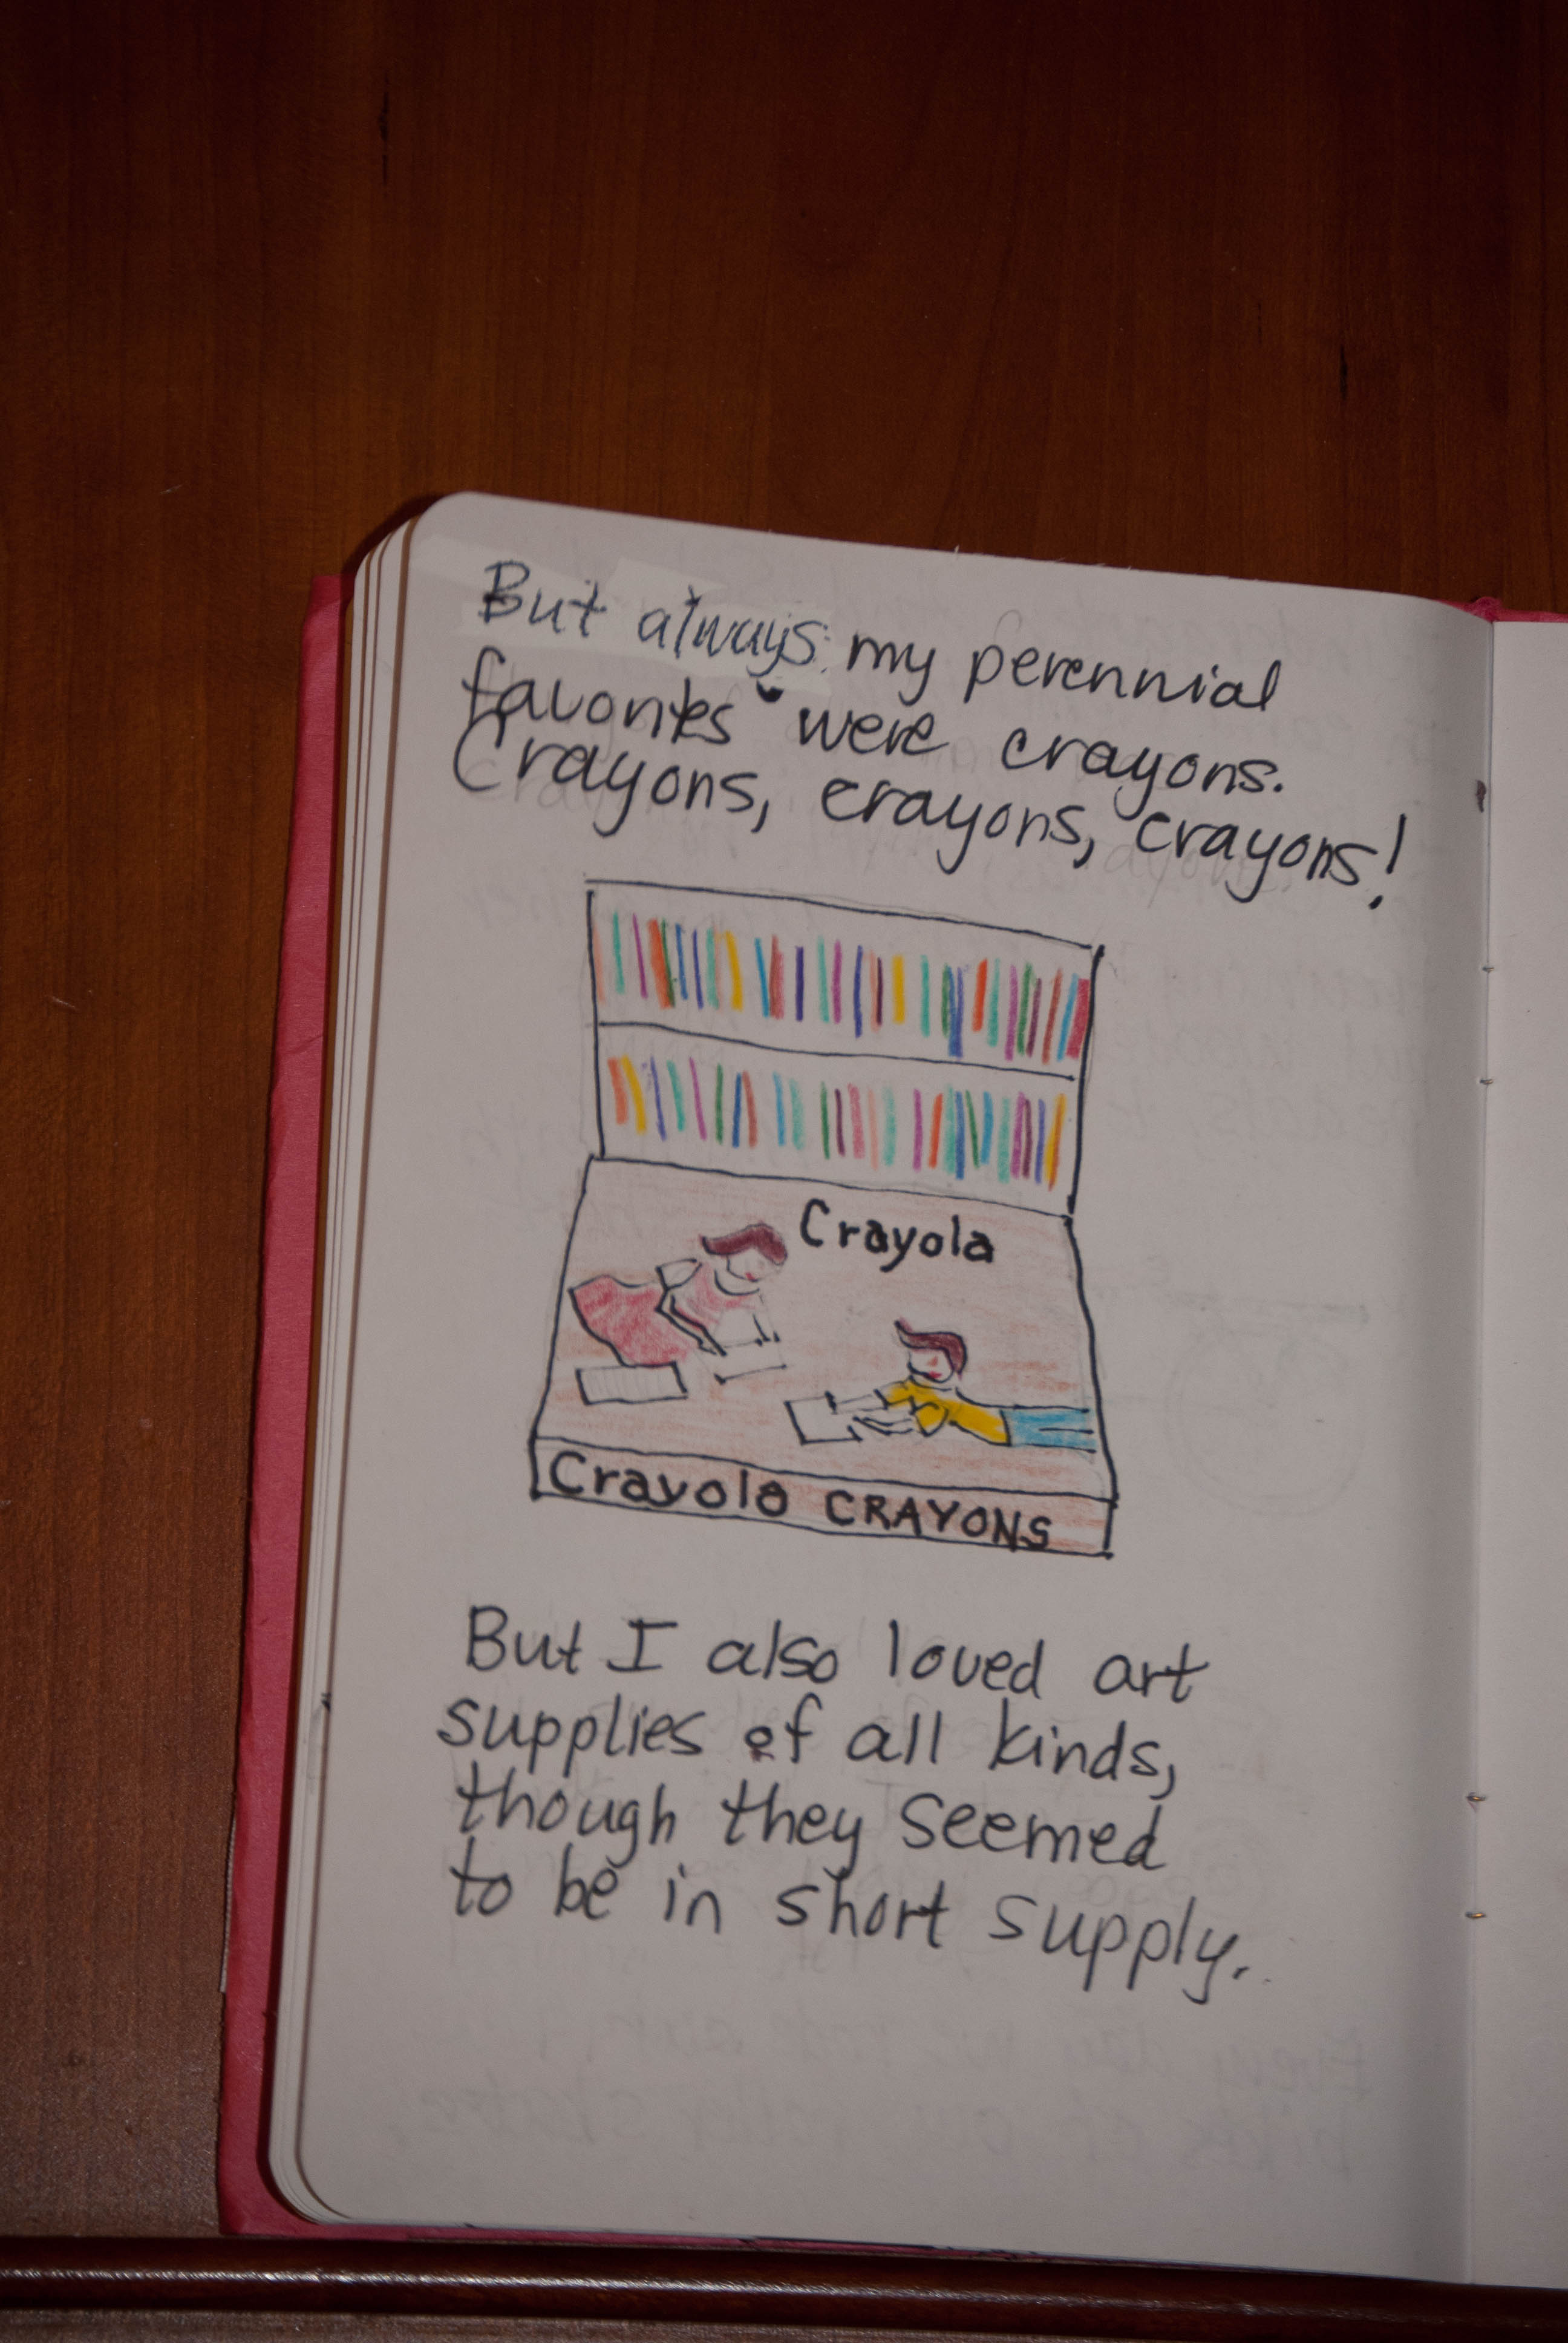 But always my perennial
favorites were crayons.
Crayons, crayons, crayons!
Crayola
Crayola CRAYONS
But I also loved art
supplies of all kinds,
though they seemed
to be in short supply.